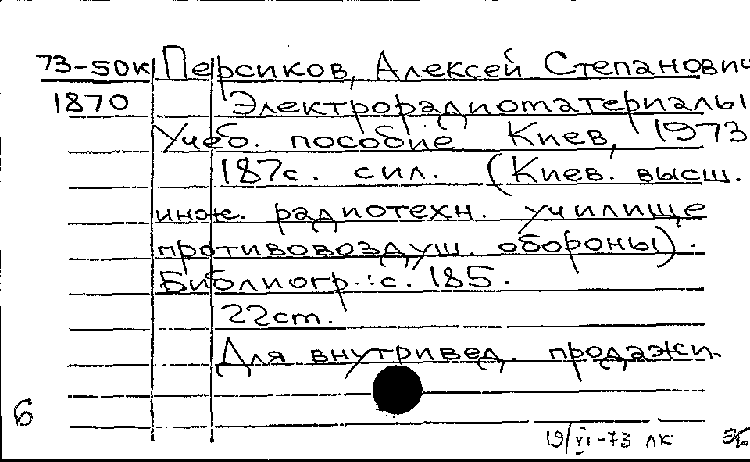 73-50к Персиков, Алексей Степанович
1870 Электрорадиоматериалы
Учеб. пособие Киев, 1973
187с. с ил. (Киев. высш.
инж. радиотехн. училище
противовоздуш. обороны).
Библиогр.: с. 185.
22 см.
Для внутривед. продажи.
6
19/VI-73 лк